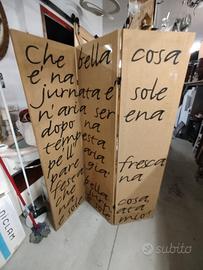 Che bella cosa
e' na
jurnata e sole
n'aria ser ena
dopo na
temp esta
pe ll' aria fresca
pare già na
festa
che bella cosa
e sole ata
mio!
NICLAM
subito